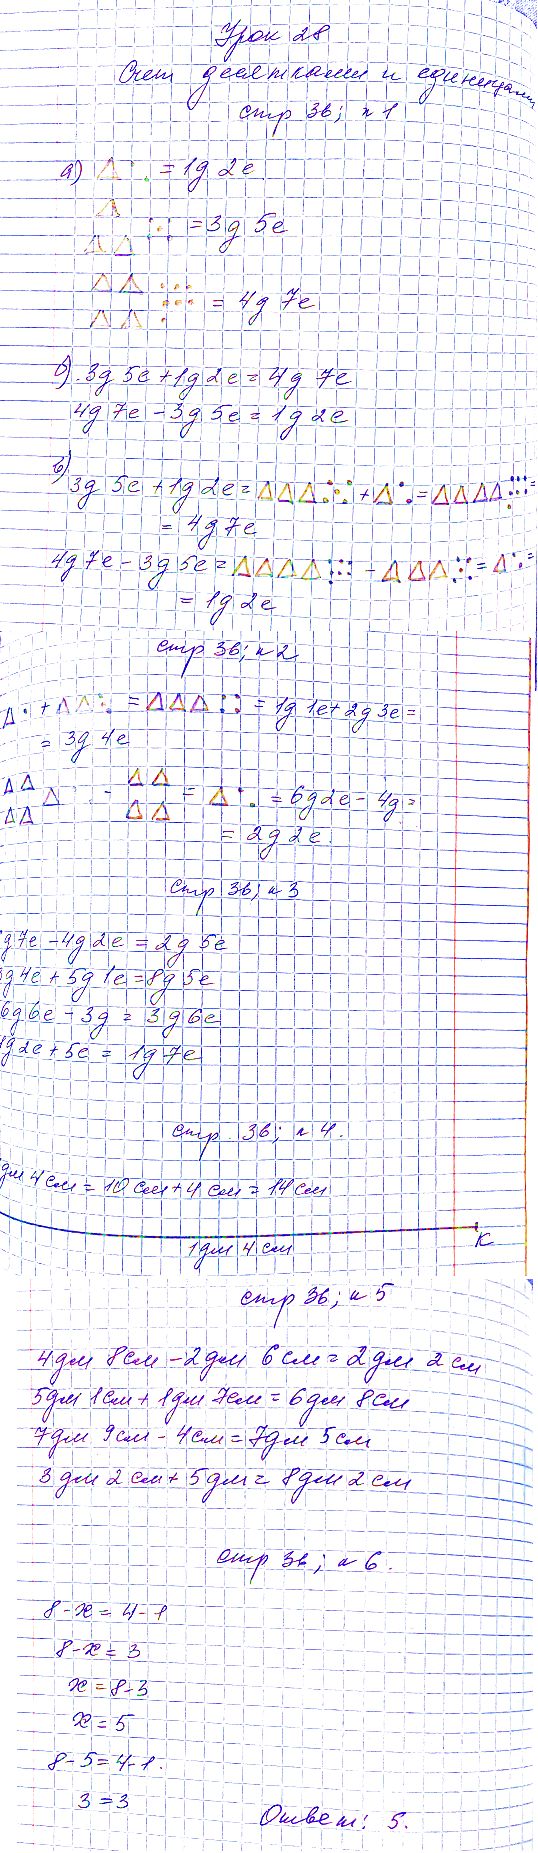 Урок 28
Счет десятками и единицами
стр 36; н 1
а) △ : = 1д 2е
△△△ = 3д 5е
△△△△ = 4д 7е
б) 3д 5е + 1д 2е = 4д 7е
4д 7е - 3д 5е = 1д 2е
в)
3д 5е + 1д 2е = △△△ + △ = △△△△ =
= 4д 7е
4д 7е - 3д 5е = △△△△ - △△△ = △ =
= 1д 2е
стр 36; н 2
△ + △△ = △△△ = 1д 1е + 2д 3е =
= 3д 4е
- △△△△ = △ = 6д 2е - 4д =
= 2д 2е.
стр 36; н 3
д 7е - 4д 2е = 2д 5е
д 4е + 5д 1е = 8д 5е
6д 6е - 3д = 3д 6е
д 2е + 5е = 1д 7е
стр. 36; н 4.
дм 4 см = 10 см + 4 см = 14 см
1 дм 4 см
К
стр 36; н 5
4 дм 8 см - 2 дм 6 см = 2 дм 2 см
5 дм 1 см + 1 дм 7 см = 6 дм 8 см
7 дм 9 см - 4 см = 7 дм 5 см
3 дм 2 см + 5 дм = 8 дм 2 см
стр 36; н 6.
8 - х = 4 - 1
8 - х = 3
х = 8 - 3
х = 5
8 - 5 = 4 - 1.
3 = 3
Ответ: 5.